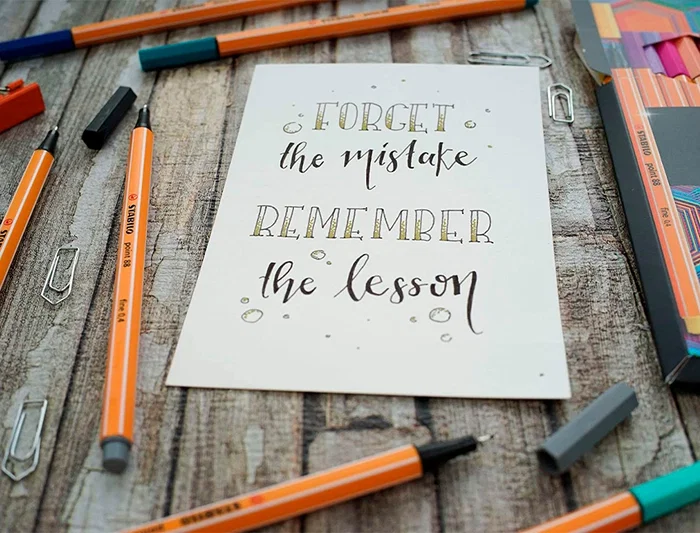 FORGET
the mistake
REMEMBER
the lesson
STABILO point 88 fine 0,4
STABILO point 88 fine 0,4
STABILO
STABILO